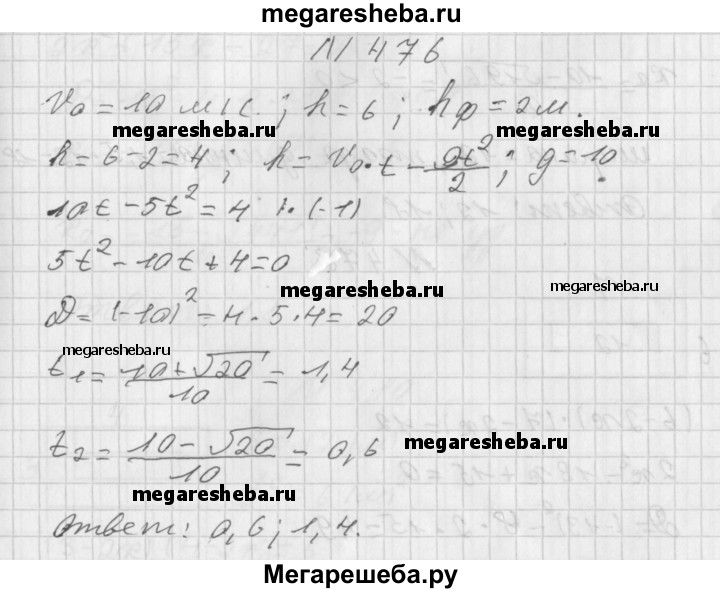 megaresheba.ru
N 476
V₀ = 10 м/с.; h = 6; hф = 2м.
megaresheba.ru
megaresheba.ru
h = 6 - 2 = 4; h = V₀·t - gt²/2; g = 10.
10t - 5t² = 4 |·(-1)
5t² - 10t + 4 = 0
megaresheba.ru
megaresheba.ru
D = (-10)² - 4·5·4 = 20
megaresheba.ru
t₁ = (10+√20)/10 = 1,4
t₂ = (10-√20)/10 = 0,6
megaresheba.ru
megaresheba.ru
Ответ: 0,6; 1,4.
Мегарешеба.ру